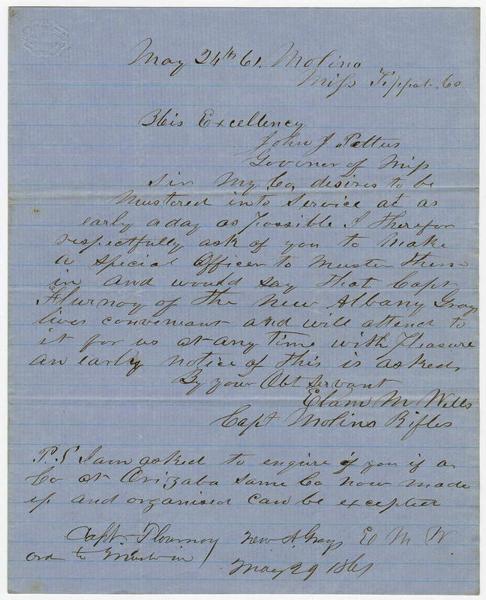 May 24th 61. Molino
Miss Tippah Co
His Excellency
John J Pettus
Goviner of Miss
Sir My Co, desires to be
Mustered into Service at as
early a day as Possible I therefor
respectfully ask of you to make
a special Officer to Muster them
in and would say that Capt
Flurnoy of the New Albany Grays
lives convenant and will attend to
it for us at any time with Pleasure
an early notice of this is asked,
By your Obt Servant
Elam M Wells
Capt Molino Rifles
P.S I am asked to enquire of you if a
Co at Orizaba same Co now made
up and organised can be excepted
E M W
Capt Flournoy New A. Grays
ord to Muster in
May 29 1861